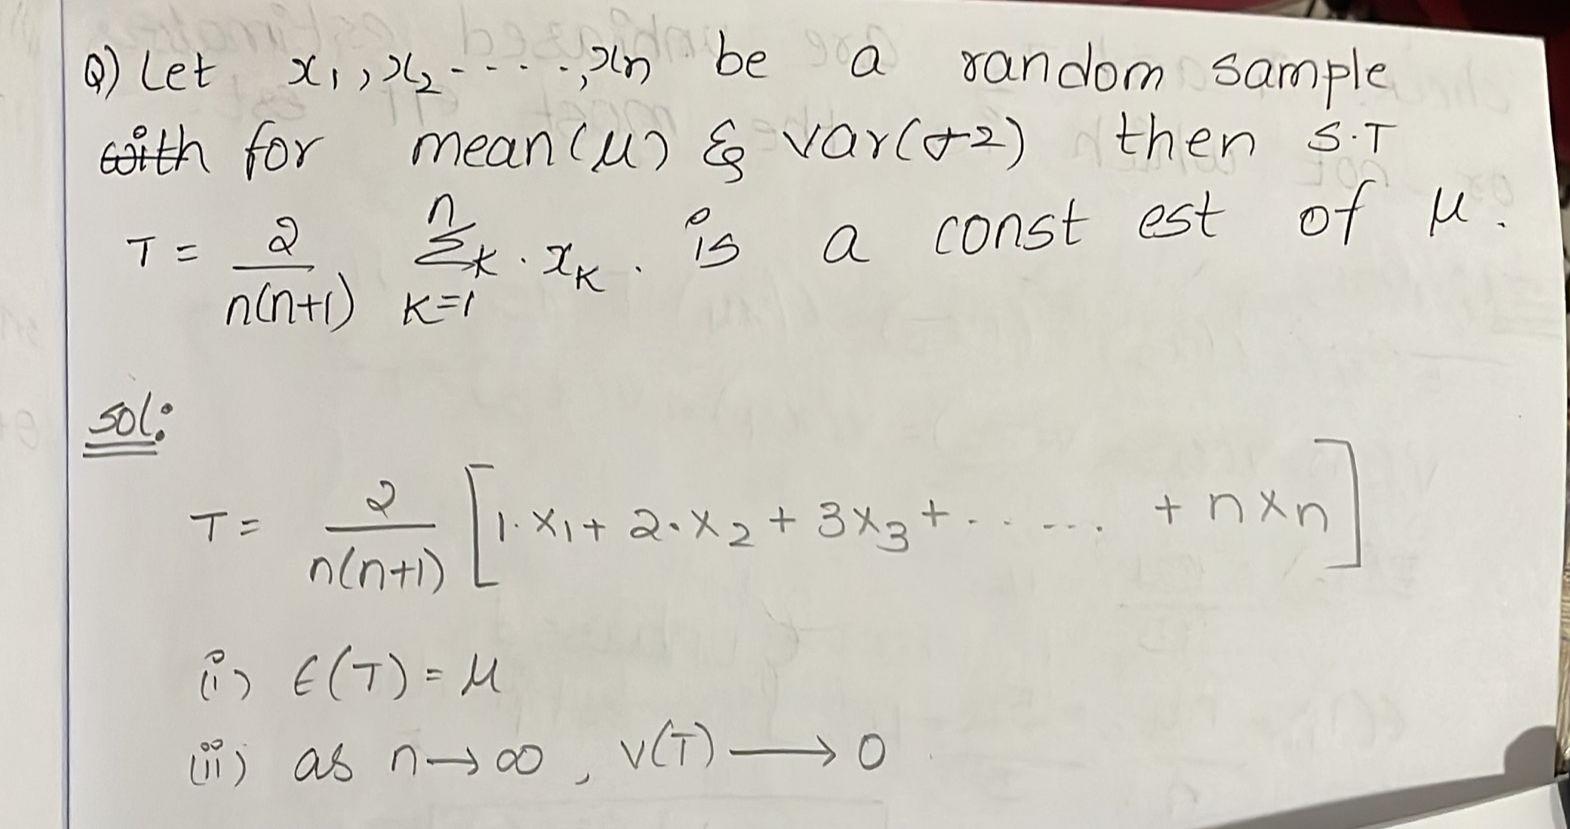 Q) Let x₁, x₂-----,xn be a random sample
with for mean(μ) & var(σ2) then S.T
T = 2/n(n+1) nΣk=1 k . xK . is a const est of μ.
sol:
T = 2/n(n+1) [1.x₁ + 2.x₂ + 3x₃ + ...... + nxn]
(i) E(T) = μ
(ii) as n→∞, V(T) → 0